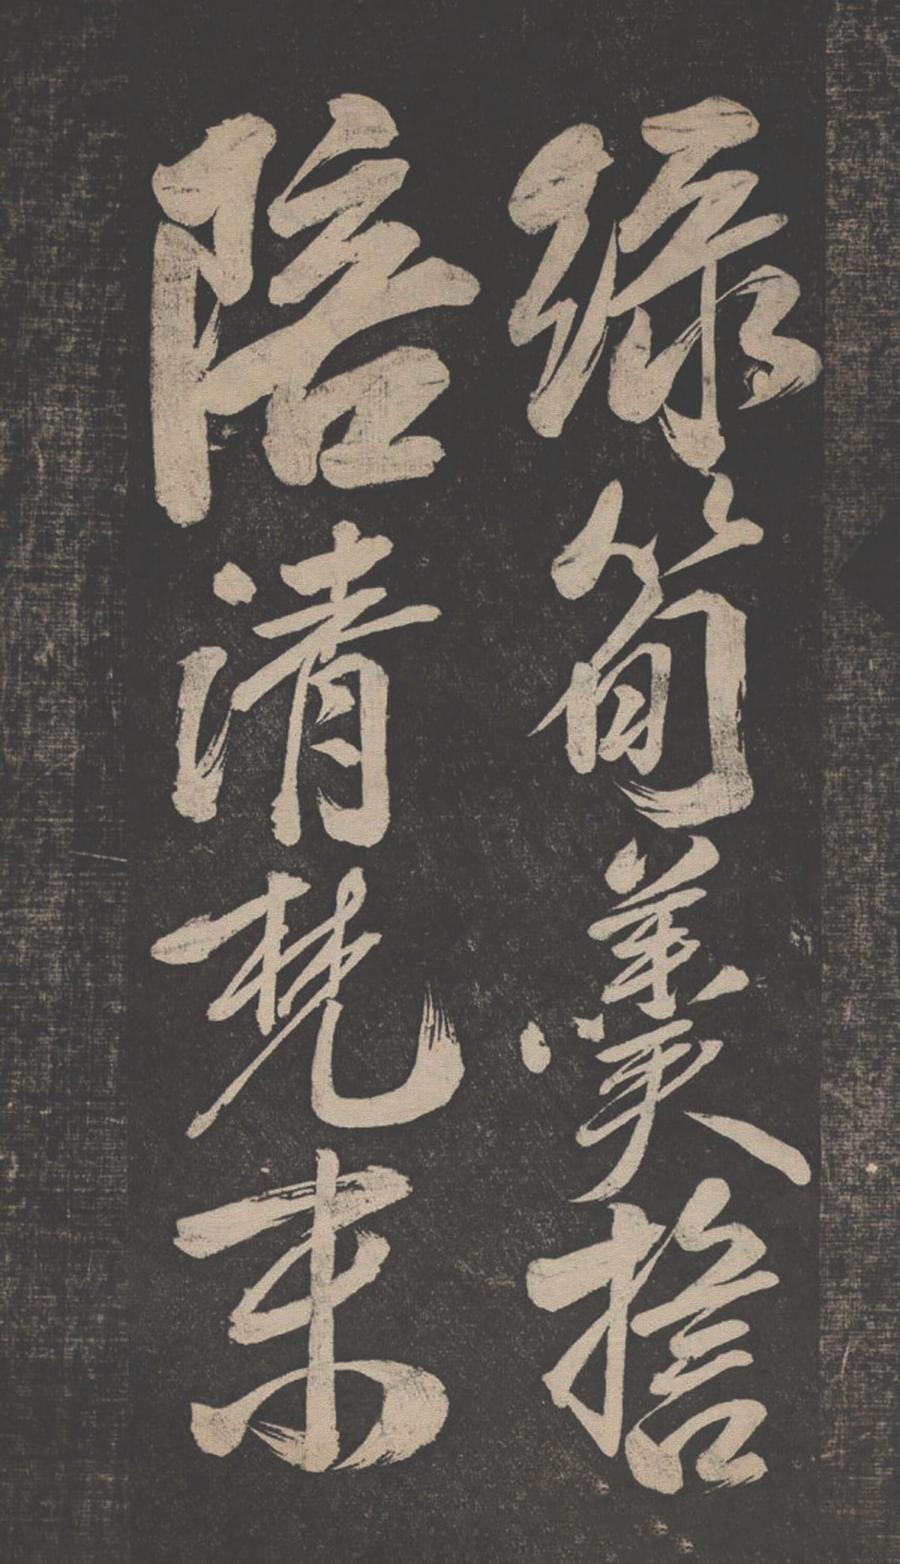 綠筍羹捨
陪清梵末